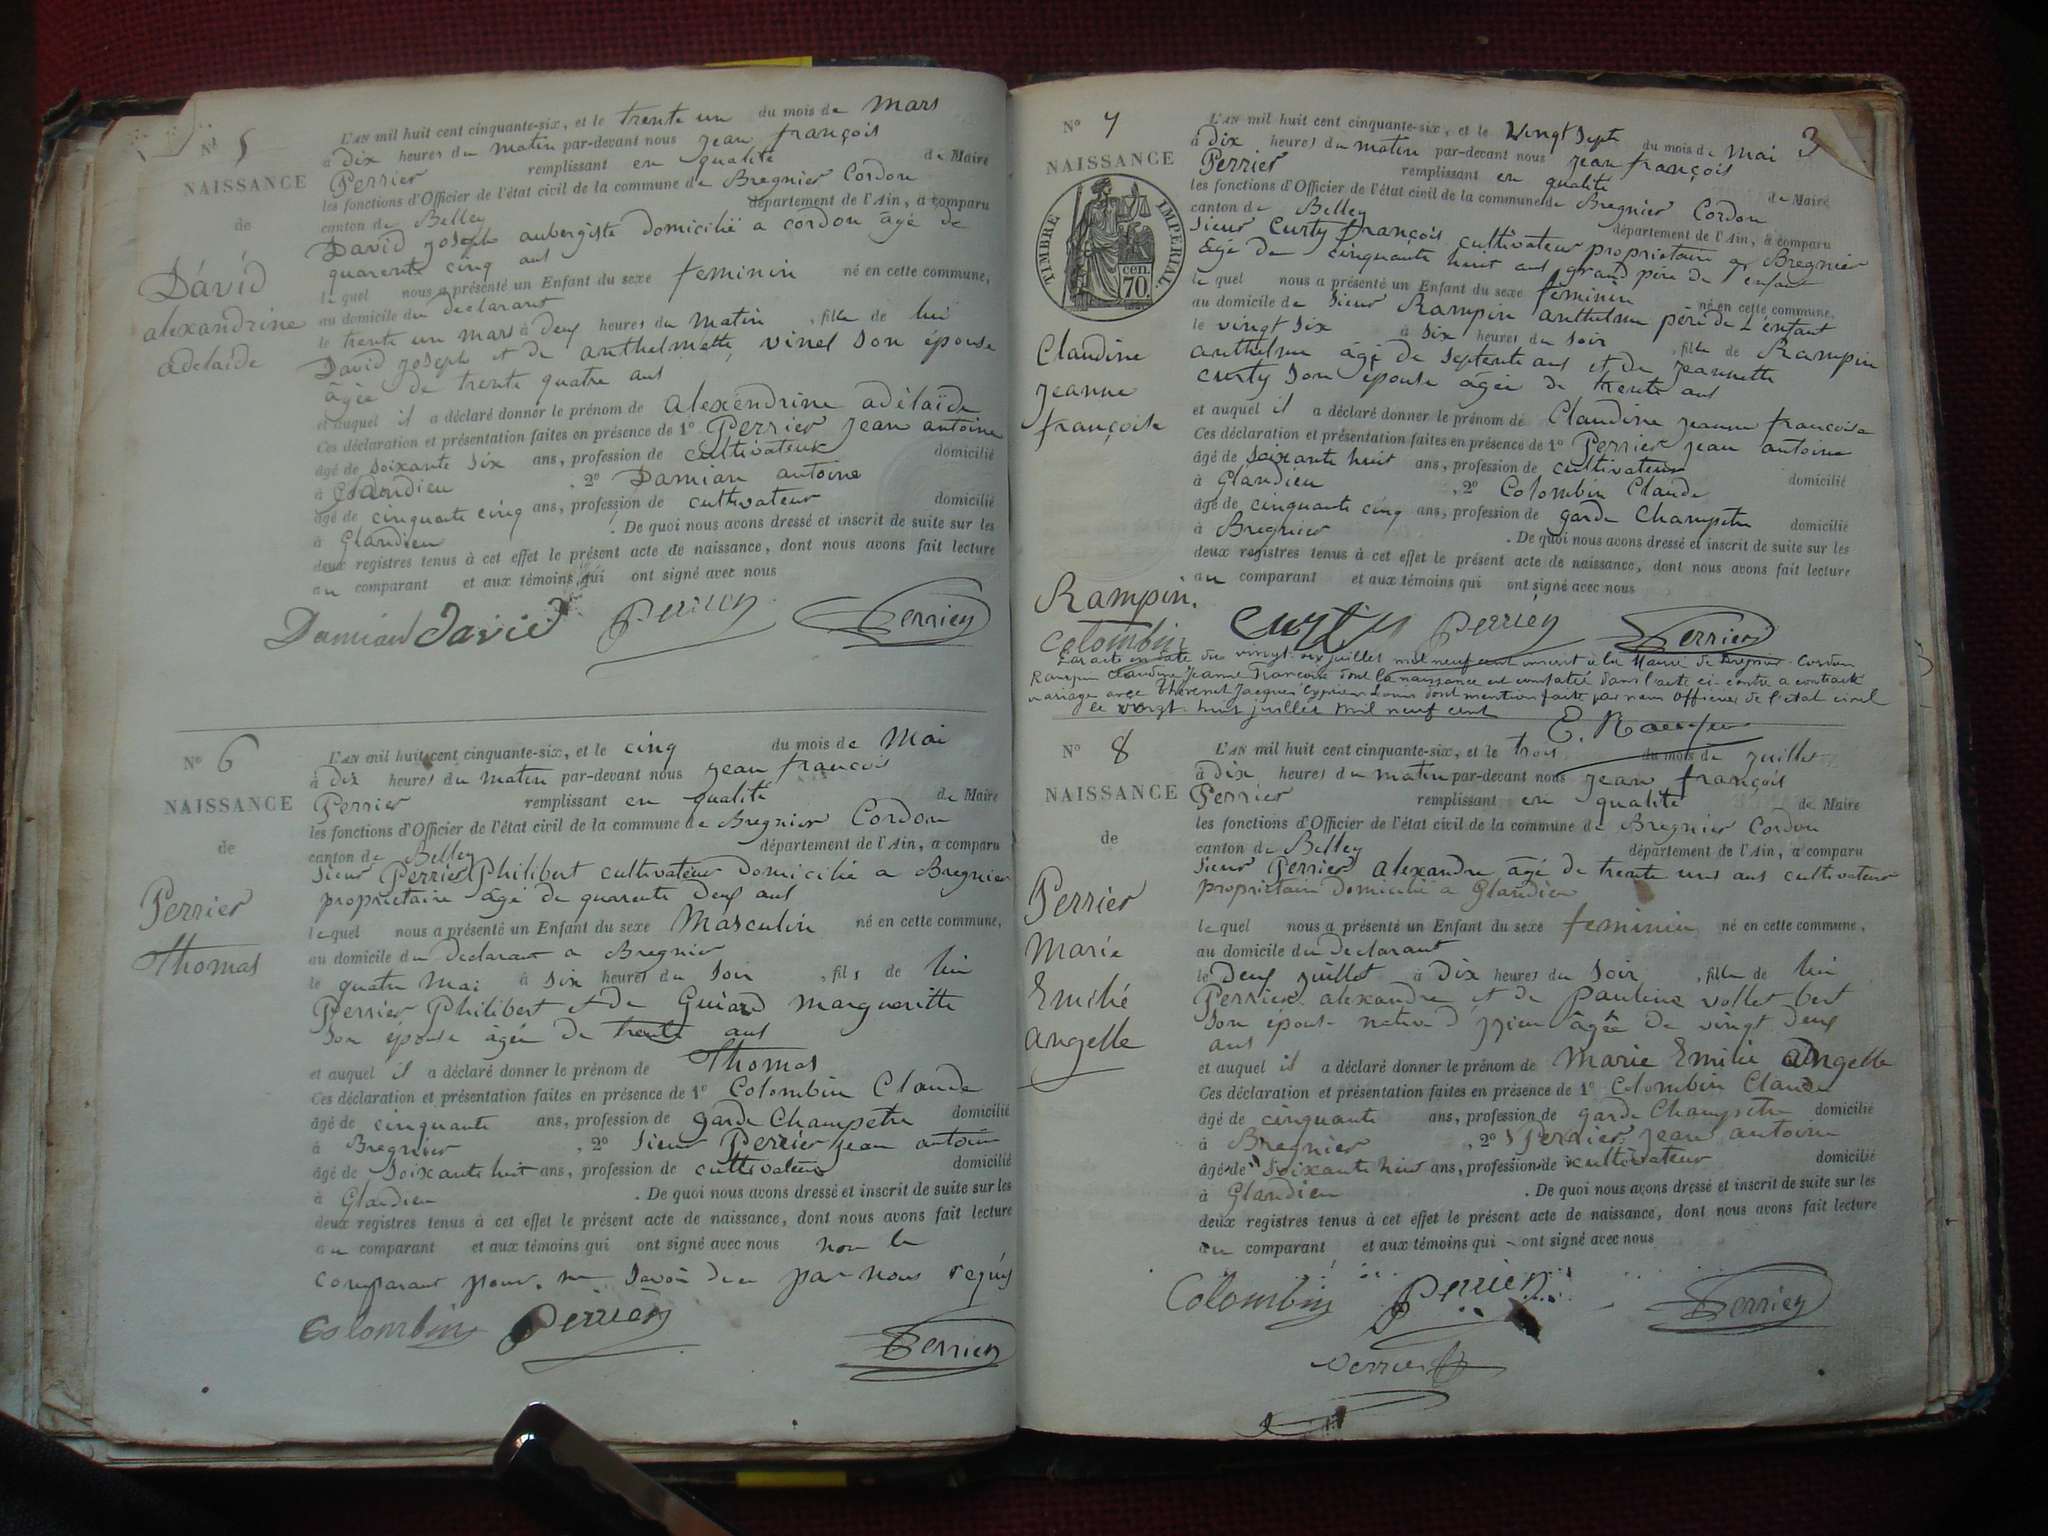 N° 5
NAISSANCE
de
David
alexandrine
adelaïde
L'AN mil huit cent cinquante-six, et le trente un du mois de Mars
à dix heures du matin par-devant nous jean françois
Perrier remplissant en qualité de Maire
les fonctions d'Officier de l'état civil de la commune de Bregnier Cordon
canton de Belley département de l'Ain, a comparu
David joseph aubergiste domicilié a cordon âgé de
quarente cinq ans
lequel nous a présenté un Enfant du sexe feminin né en cette commune,
au domicile du declarant
le trente un mars à deux heures du matin, fille de lui
David joseph et de anthelmette vinel son épouse
âgée de trente quatre ans
et auquel il a déclaré donner le prénom de alexendrine adélaïde
Ces déclaration et présentation faites en présence de 1° Perrier jean antoine
âgé de soixante six ans, profession de cultivateur domicilié
à Glandieu, 2° Damian antoine
âgé de cinquante cinq ans, profession de cultivateur domicilié
à Glandieu. De quoi nous avons dressé et inscrit de suite sur les
deux registres tenus à cet effet le présent acte de naissance, dont nous avons fait lecture
au comparant et aux témoins qui ont signé avec nous
Damian David Perrier Perrier
N° 6
NAISSANCE
de
Perrier
Thomas
L'AN mil huit cent cinquante-six, et le cinq du mois de Mai
à dix heures du matin par-devant nous jean francois
Perrier remplissant en qualité de Maire
les fonctions d'Officier de l'état civil de la commune de Bregnier Cordon
canton de Belley département de l'Ain, a comparu
sieur Perrier Philibert cultivateur domicilié a Bregnier
proprietaire âgé de quarente deux ans
lequel nous a présenté un Enfant du sexe Masculin né en cette commune,
au domicile du declarant a Bregnier
le quatre mai à six heures du soir, fils de lui
Perrier Philibert et de Guiard margueritte
son épouse âgée de trente ans
et auquel il a déclaré donner le prénom de Thomas
Ces déclaration et présentation faites en présence de 1° Colombin Claude
âgé de cinquante ans, profession de garde Champetre domicilié
à Bregnier, 2° sieur Perrier jean antoine
âgé de soixante huit ans, profession de cultivateur domicilié
à Glandieu. De quoi nous avons dressé et inscrit de suite sur les
deux registres tenus à cet effet le présent acte de naissance, dont nous avons fait lecture
au comparant et aux témoins qui ont signé avec nous non le
comparant pour ne savoir de ce par nous requis
Colombin Perrier Perrier
3
N° 7
NAISSANCE
TIMBRE IMPERIAL.
70 cen.
Claudine
jeanne
françoise
Rampin.
L'AN mil huit cent cinquante-six, et le vingt sept du mois de mai
à dix heures du matin par-devant nous jean françois
Perrier remplissant en qualité de Maire
les fonctions d'Officier de l'état civil de la commune de Bregnier Cordon
canton de Belley département de l'Ain, a comparu
sieur Curty françois cultivateur proprietaire a Bregnier
âgé de cinquante huit ans grand père de l'enfant
lequel nous a présenté un Enfant du sexe féminin né en cette commune,
au domicile de sieur Rampin anthelme père de l'enfant
le vingt six à six heures du soir, fille de Rampin
anthelme âgé de septente ans et de jeannette
curty son épouse âgée de trente ans
et auquel il a déclaré donner le prénom de Claudine jeanne francoise
Ces déclaration et présentation faites en présence de 1° Perrier jean antoine
âgé de soixante huit ans, profession de cultivateur domicilié
à Glandieu, 2° Colombin Claude
âgé de cinquante cinq ans, profession de garde Champetre domicilié
à Bregnier. De quoi nous avons dressé et inscrit de suite sur les
deux registres tenus à cet effet le présent acte de naissance, dont nous avons fait lecture
au comparant et aux témoins qui ont signé avec nous
Colombin Curty Perrier Perrier
Par acte en date du vingt six juillet mil neuf cent inscrit à la Mairie de Bregnier-Cordon
Rampin Claudine Jeanne Françoise dont la naissance est constatée dans l'acte ci-contre a contracté
mariage avec Thevenet Jacques Cyprien Louis dont mention faite par nous Officier de l'état civil
le vingt huit juillet mil neuf cent
N° 8
NAISSANCE
de
Perrier
Marie
Emilie
angelle
L'AN mil huit cent cinquante-six, et le trois du mois de juillet
à dix heures du matin par-devant nous jean françois
Perrier remplissant en qualité de Maire
les fonctions d'Officier de l'état civil de la commune de Bregnier Cordon
canton de Belley département de l'Ain, a comparu
sieur Perrier alexandre âgé de trente uns ans cultivateur
proprietaire domicilié a Glandieu
lequel nous a présenté un Enfant du sexe feminin né en cette commune,
au domicile du declarant
le deux juillet à dix heures du soir, fille de lui
Perrier alexandre et de Pauline vollet bert
son épouse native d' âgée de vingt deux
ans
et auquel il a déclaré donner le prénom de Marie Emilie Angelle
Ces déclaration et présentation faites en présence de 1° Colombin Claude
âgé de cinquante ans, profession de garde Champetre domicilié
à Bregnier, 2° Perrier jean antoine
âgé de soixante huit ans, profession de cultivateur domicilié
à Glandieu. De quoi nous avons dressé et inscrit de suite sur les
deux registres tenus à cet effet le présent acte de naissance, dont nous avons fait lecture
au comparant et aux témoins qui ont signé avec nous
Colombin Perrier Perrier
Perrier